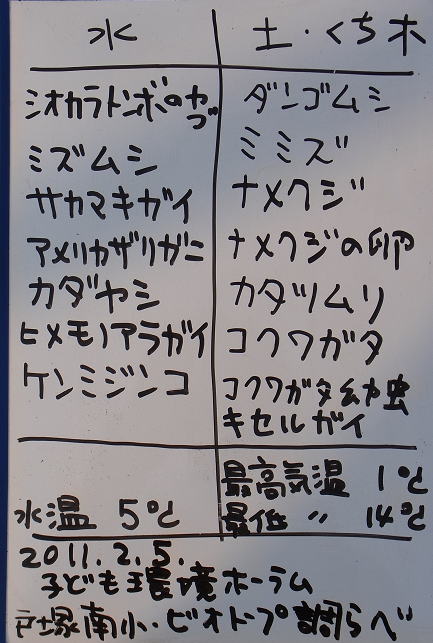 水
シオカラトンボのヤゴ
ミズムシ
サカマキガイ
アメリカザリガニ
カダヤシ
ヒメモノアラガイ
ケンミジンコ
水温 5℃
土・くち木
ダンゴムシ
ミミズ
ナメクジ
ナメクジの卵
カタツムリ
コクワガタ
コクワガタ幼虫
キセルガイ
最高気温 1℃
最低 〃 14℃
2011.2.5.
子ども環境ホーラム
戸塚南小・ビオトープ調らべ